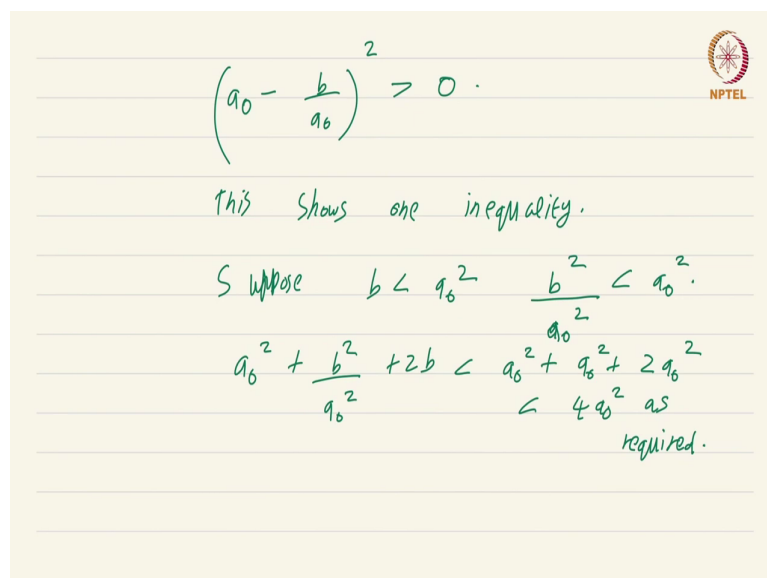 (a₀ - b/a₀)² > 0.
NPTEL
This shows one inequality.
Suppose b < a₀² b²/a₀² < a₀².
a₀² + b²/a₀² + 2b < a₀² + a₀² + 2a₀²
< 4a₀² as
required.